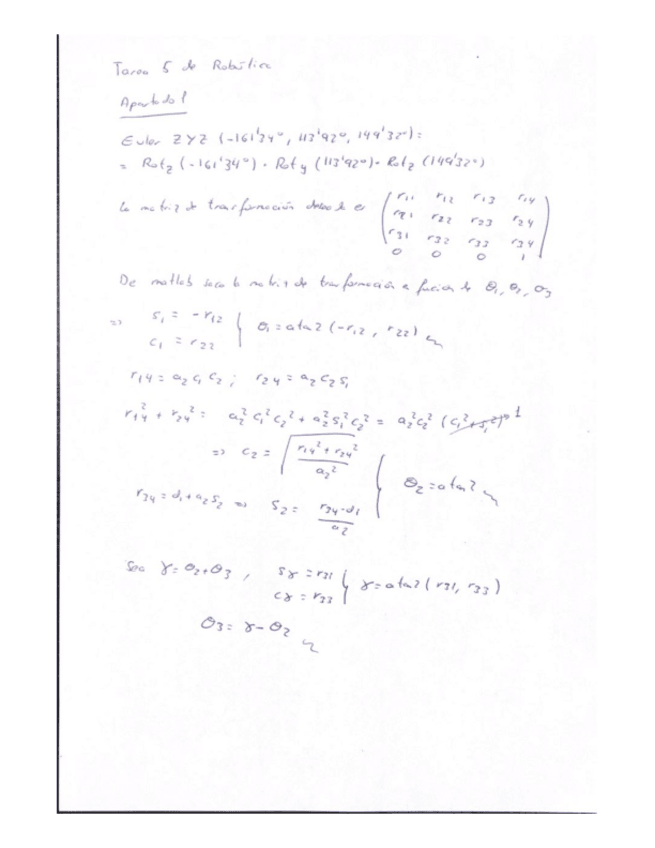 Tarea 5 de Robótica
Apartado 1
Euler ZYZ (-161'34º, 113'92º, 149'32º) =
= Rotz (-161'34º) · Roty (113'92º) · Rotz (149'32º)
la matriz de transformación es
r11 r12 r13 r14
r21 r22 r23 r24
r31 r32 r33 r34
0 0 0 1
De matlab saco la matriz de transformación en función de θ1, θ2, θ3
=> s1 = -r12
c1 = r22
θ1 = atan2 (-r12, r22)
r14 = a2 c1 c2 ; r24 = a2 c2 s1
r14² + r24² = a2² c1² c2² + a2² s1² c2² = a2² c2² (c1² + s1²) 1
=> c2 = √((r14² + r24²)/a2²)
θ2 = atan2
r34 = d1 + a2 s2 => s2 = (r34 - d1)/a2
Sea γ = θ2 + θ3 , sγ = r31
cγ = r33
γ = atan2 (r31, r33)
θ3 = γ - θ2